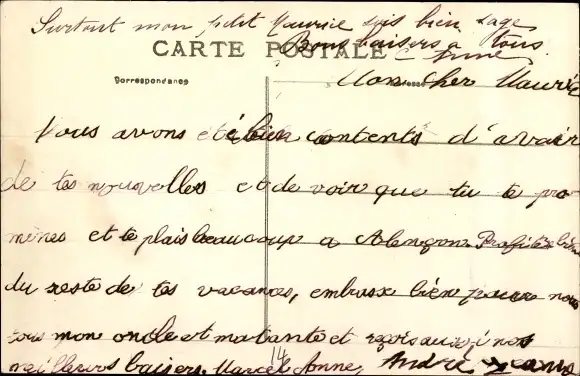 Surtout mon petit Maurice sois bien sage
Bons baisers a tous
CARTE POSTALE
Anne
Correspondance
Mon cher Maurice
Nous avons été bien contents d'avoir
de tes nouvelles et de voir que tu te pro
mènes et te plais beaucoup a Alençon Profite bien
du reste de tes vacances, embrasse bien pour nous
tous mon oncle et ma tante et reçois aussi nos
meilleurs baisers. Marcel Anne, André
14